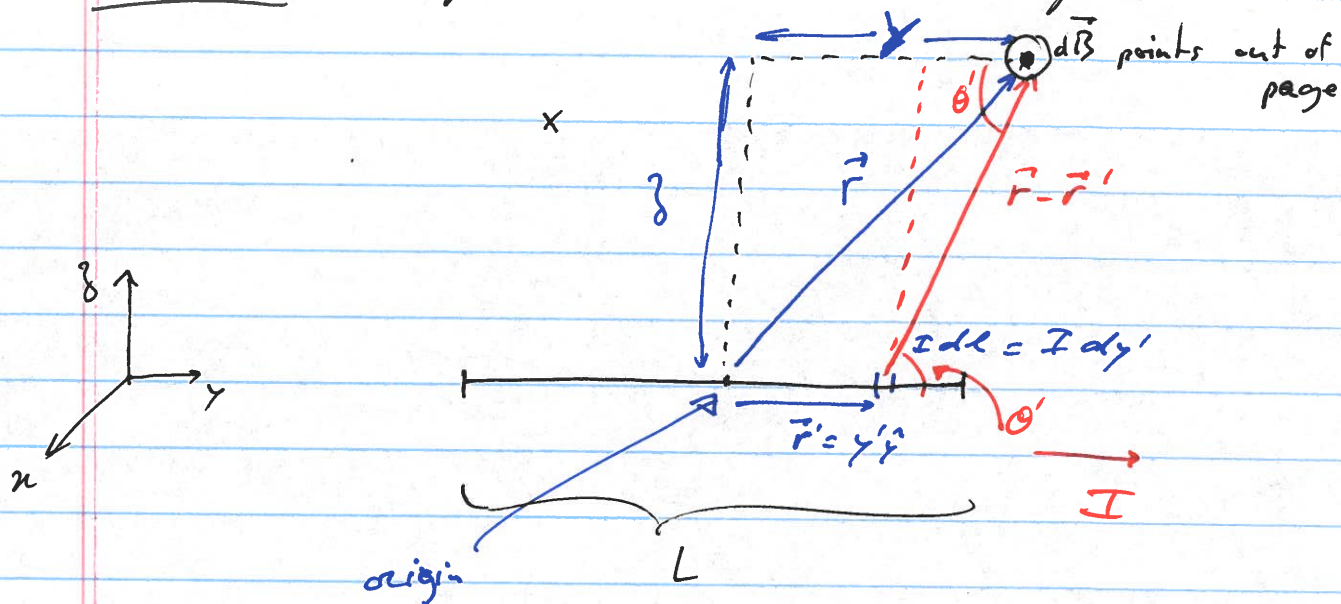 y
dB⃗ points out of
page
θ'
x
z
r⃗
r⃗ - r⃗'
z
y
x
I dl = I dy'
r⃗' = y'ŷ
θ'
I
L
origin